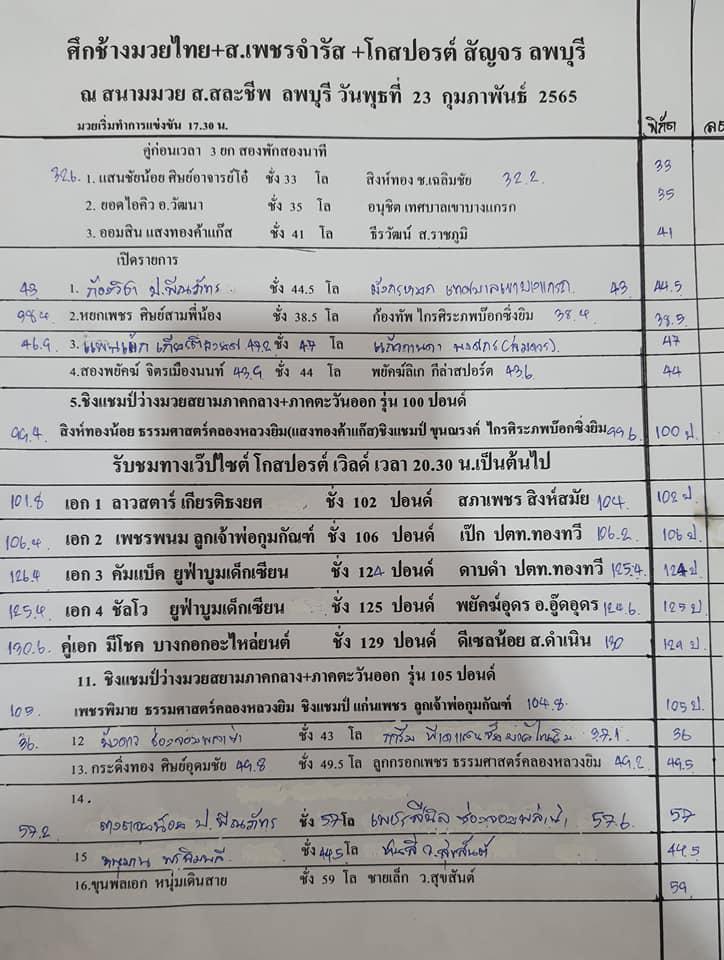 ศึกช้างมวยไทย+ส.เพชรจำรัส +โกสปอรต์ สัญจร ลพบุรี
ณ สนามมวย ส.สละชีพ ลพบุรี วันพุธที่ 23 กุมภาพันธ์ 2565
มวยเริ่มทำการแข่งขัน 17.30 น. พิกัด
คู่ก่อนเวลา 3 ยก สองพักสองนาที
32.6 1. แสนชัยน้อย ศิษย์อาจารย์โอ๋ ชั่ง 33 โล สิงห์ทอง ช.เฉลิมชัย 32.2. 33
2. ยอดไอคิว อ.วัฒนา ชั่ง 35 โล อนุชิต เทศบาลเขาบางแกรก 35
3. ออมสิน แสงทองค้าแก๊ส ชั่ง 41 โล ธีรวัฒน์ ส.ราชภูมิ 41
เปิดรายการ
43 1. ป.พีณภัทร ชั่ง 44.5 โล เทศบาลเขาบางแกรก 43 44.5
38.4 2.หยกเพชร ศิษย์สามพี่น้อง ชั่ง 38.5 โล ก้องทัพ ไกรศิระภพบ๊อกซิ่งยิม 38.4 38.5
46.9 3. 47.2 ชั่ง 47 โล 47
4.สองพยัคฆ์ จิตรเมืองนนท์ 43.9 ชั่ง 44 โล พยัคฆ์ลิเก กีล่าสปอร์ต 43.6 44
5.ชิงแชมป์ว่างมวยสยามภาคกลาง+ภาคตะวันออก รุ่น 100 ปอนด์
99.4. สิงห์ทองน้อย ธรรมศาสตร์คลองหลวงยิม(แสงทองค้าแก๊ส)ชิงแชมป์ ขุนณรงค์ ไกรศิระภพบ๊อกซิ่งยิม 99.6. 100 ป.
รับชมทางเว๊ปไซต์ โกสปอรต์ เวิลด์ เวลา 20.30 น.เป็นต้นไป
101.8 เอก 1 ลาวสตาร์ เกียรติธงยศ ชั่ง 102 ปอนด์ สภาเพชร สิงห์สมัย 104. 102 ป.
106.4 เอก 2 เพชรพนม ลูกเจ้าพ่อกุมกัณฑ์ ชั่ง 106 ปอนด์ เป๊ก ปตท.ทองทวี 106.2. 106 ป.
126.4 เอก 3 คัมแบ็ค ยูฟ่าบูมเด็กเซียน ชั่ง 124 ปอนด์ ดาบดำ ปตท.ทองทวี 125.4. 124 ป
125.4 เอก 4 ชัลโว ยูฟ่าบูมเด็กเซียน ชั่ง 125 ปอนด์ พยัคฆ์อุดร อ.อู๊ดอุดร 124.6. 125 ป
130.6. คู่เอก มีโชค บางกอกอะไหล่ยนต์ ชั่ง 129 ปอนด์ ดีเซลน้อย ส.ดำเนิน 130 129 ป.
11. ชิงแชมป์ว่างมวยสยามภาคกลาง+ภาคตะวันออก รุ่น 105 ปอนด์
105. เพชรพิมาย ธรรมศาสตร์คลองหลวงยิม ชิงแชมป์ แก่นเพชร ลูกเจ้าพ่อกุมภัณฑ์ 104.8. 105 ป.
36. 12 ช่องจอมพลาซ่า ชั่ง 43 โล 37.1 36
13. กระดิ่งทอง ศิษย์อุดมชัย 49.8 ชั่ง 49.5 โล ลูกกรอกเพชร ธรรมศาสตร์คลองหลวงยิม 49.2 49.5
14.
57.2 ป.พีณภัทร ชั่ง 57 โล ช่องจอมพลาซ่า 57.6. 57
15 ชั่ง 44.5 โล ว.สุขสันต์ 44.5
16.ขุนพลเอก หนุ่มเดินสาย ชั่ง 59 โล ชายเล็ก ว.สุขสันต์ 59